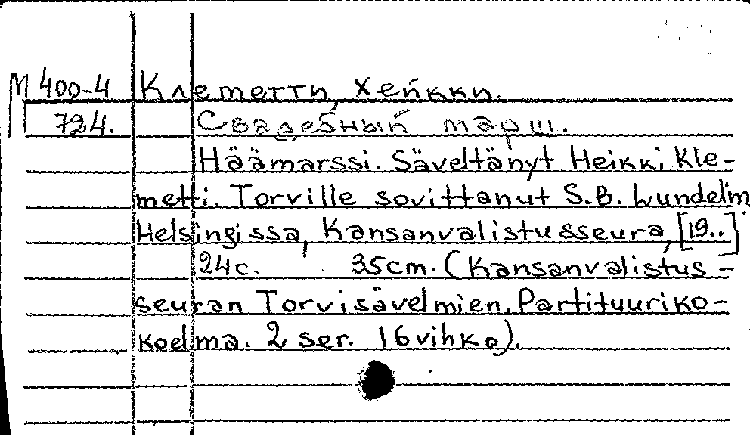 М 400-4 Клеметти, Хейкки.
724. Свадебный марш.
Häämarssi. Säveltänyt Heikki Kle-
metti. Torville sovittanut S.B. Lundelin
Helsingissa, Kansanvalistusseura, [19..]
24c. 35cm. (Kansanvalistus-
seuran Torvisävelmien. Partituuriko-
koelma. 2 ser. 16 vihko).